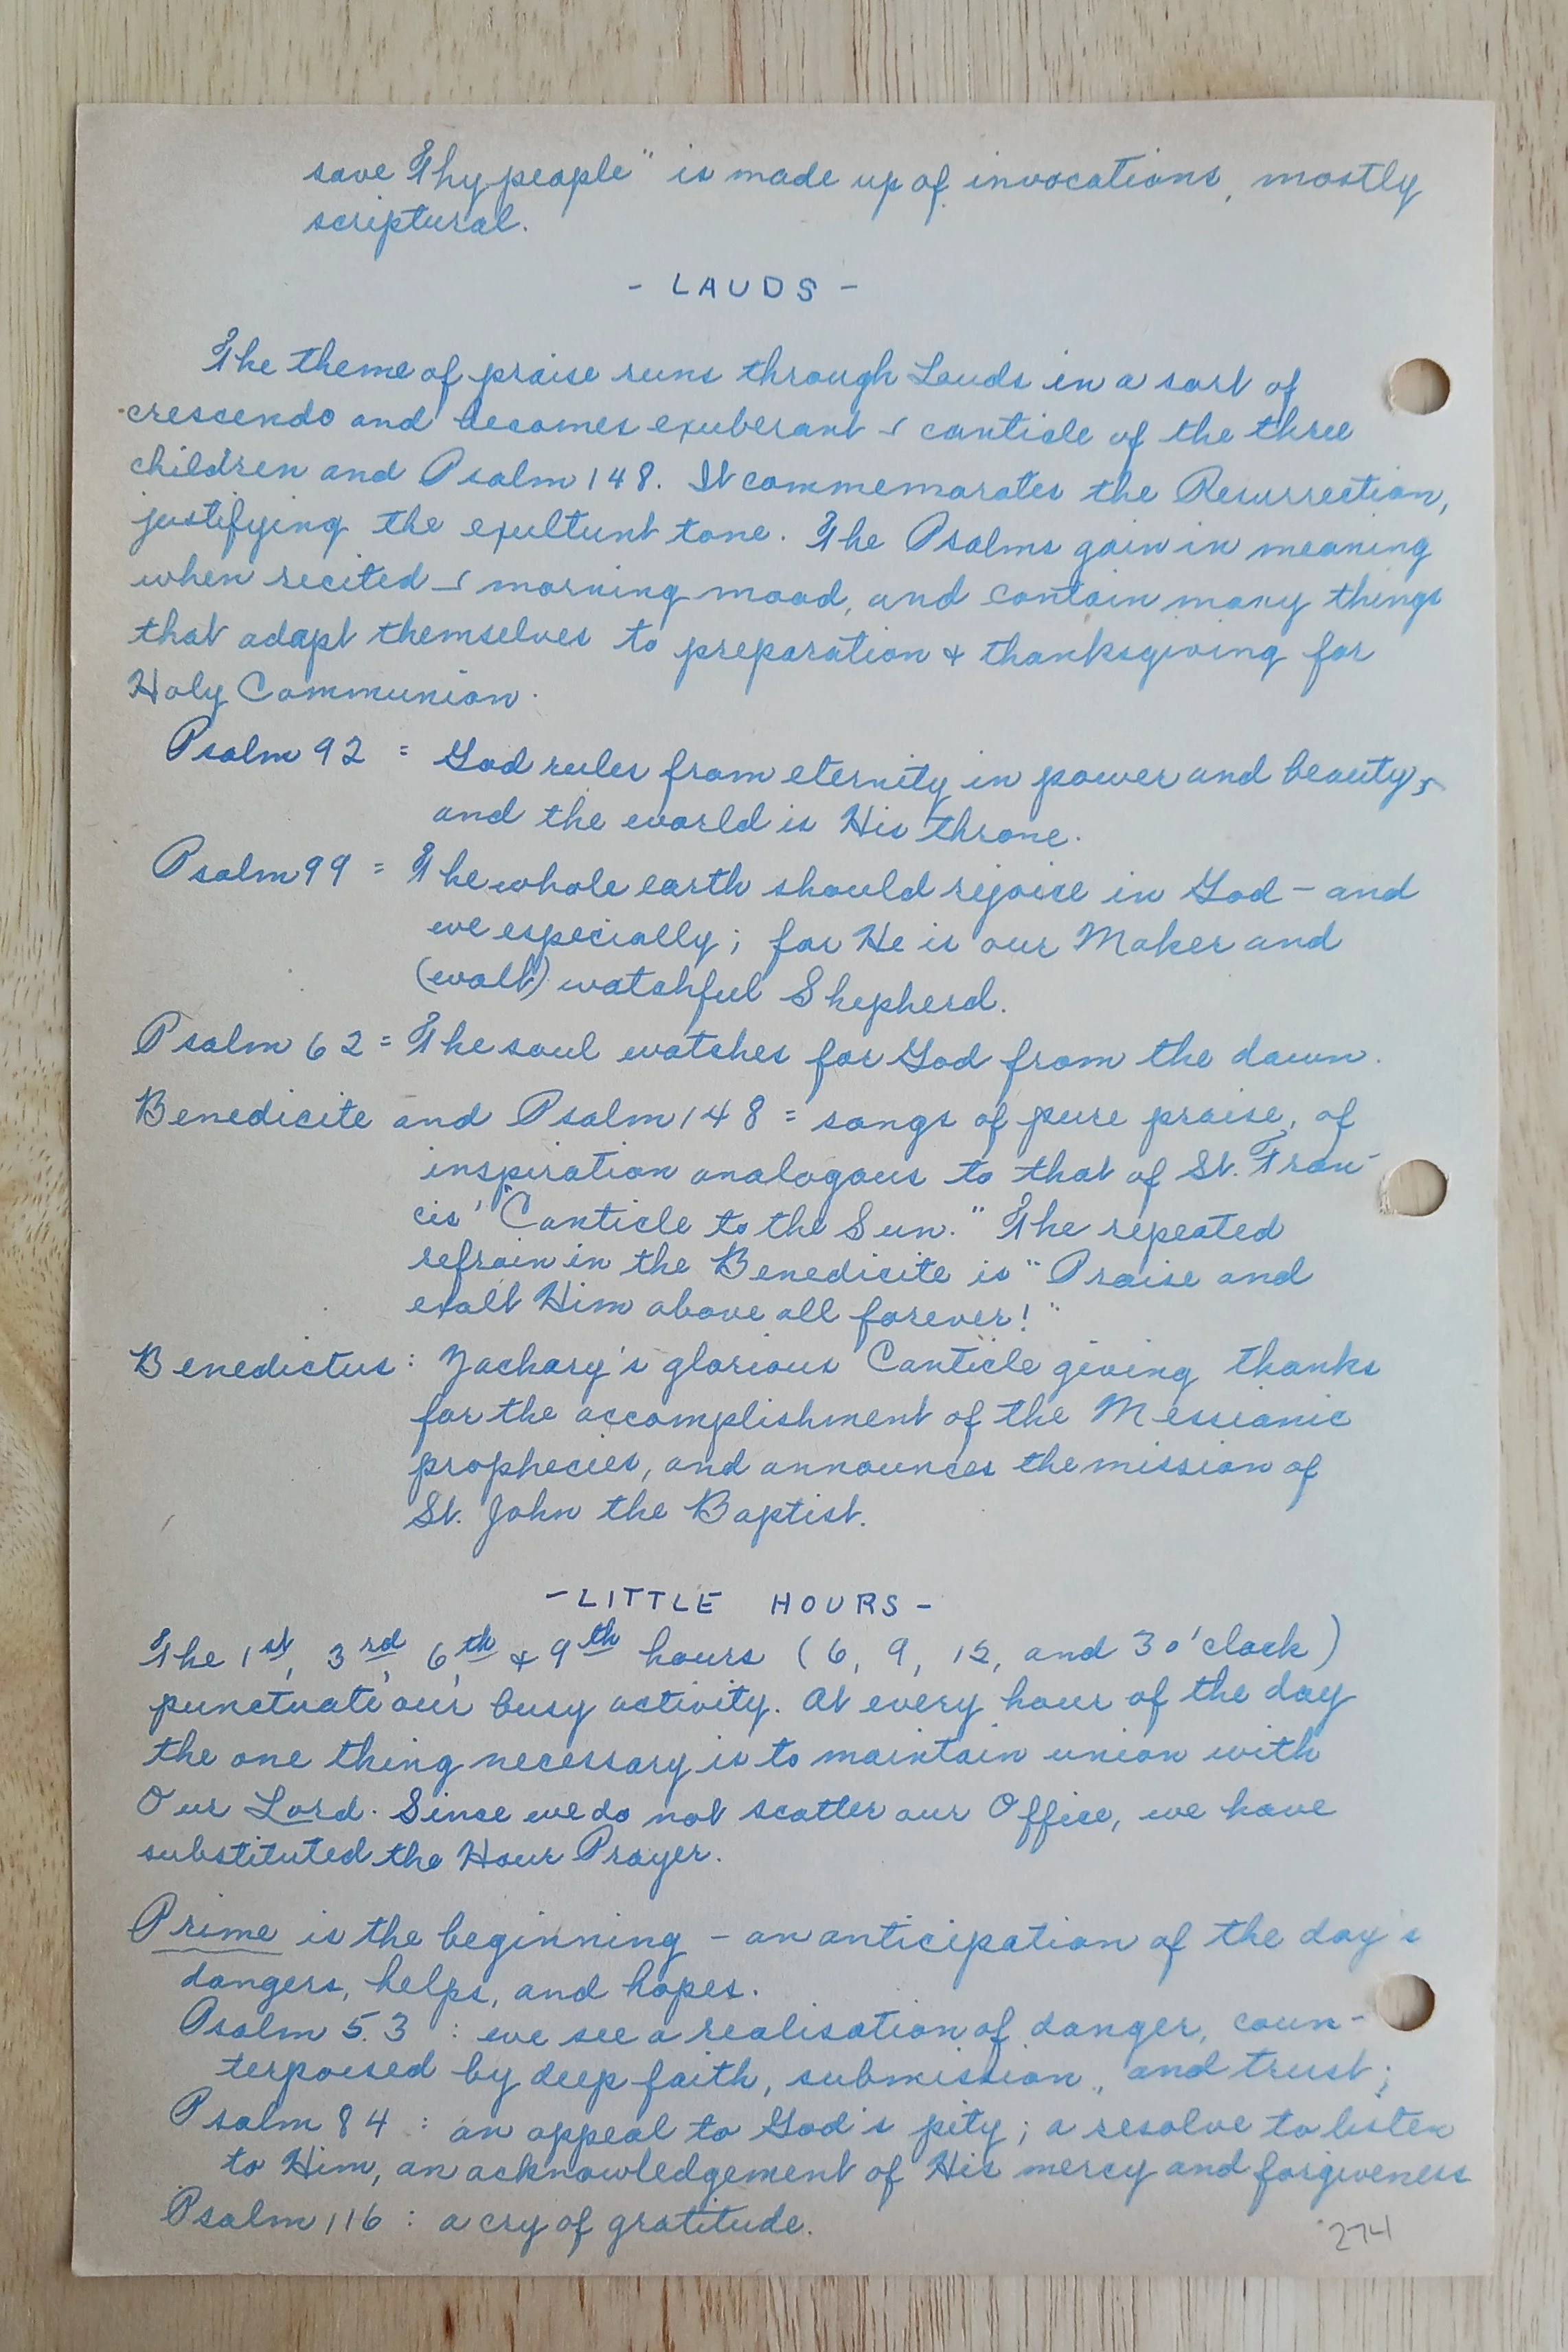 save Thy people" is made up of invocations, mostly
scriptural.
- LAUDS -
The theme of praise runs through Lauds in a sort of
crescendo and becomes exuberant canticle of the three
children and Psalm 148. It commemorates the Resurrection,
justifying the exultunt tone. The Psalms gain in meaning
when recited morning mood, and contain many things
that adapt themselves to preparation & thanksgiving for
Holy Communion.
Psalm 92 = God rules from eternity in power and beauty,
and the world is His throne.
Psalm 99 = The whole earth should rejoice in God - and
we especially; for He is our Maker and
watchful Shepherd.
Psalm 62 = The soul watches for God from the dawn.
Benedicite and Psalm 148 = songs of pure praise, of
inspiration analogous to that of St. Fran-
cis' "Canticle to the Sun." The repeated
refrain in the Benedicite is "Praise and
exalt Him above all forever!"
Benedictus: Zachary's glorious Canticle giving thanks
for the accomplishment of the Messianic
prophecies, and announces the mission of
St. John the Baptist.
- LITTLE HOURS -
The 1st, 3rd, 6th, & 9th hours (6, 9, 12, and 3 o'clock)
punctuate our busy activity. At every hour of the day
the one thing necessary is to maintain union with
Our Lord. Since we do not scatter our Office, we have
substituted the Hour Prayer.
Prime is the beginning - an anticipation of the day's
dangers, helps, and hopes.
Psalm 53 : we see a realisation of danger, coun-
terpoised by deep faith, submission, and trust;
Psalm 84 : an appeal to God's pity; a resolve to listen
to Him, an acknowledgement of His mercy and forgiveness
Psalm 116 : a cry of gratitude.
274